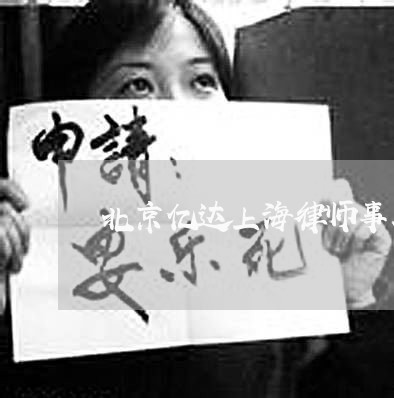 申請：
北京亿达上海律师事
安乐死